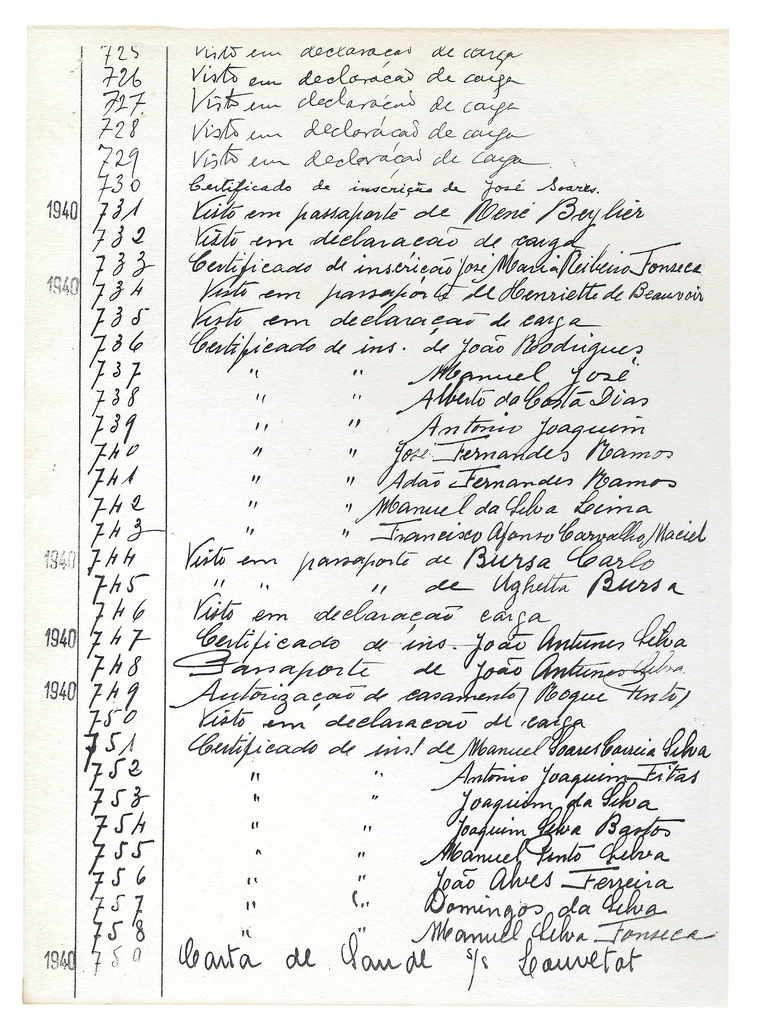 725 Visto em declaracao de carga
726 Visto em declaracao de carga
727 Visto em declaracao de carga
728 Visto em declaracao de carga
729 Visto em declaracao de carga
730 Certificado de inscrição de José Soares.
1940 731 Visto em passaporte de René Beylier
732 Visto em declaracao de carga
733 Certificado de inscricao José Maria Ribeiro Fonseca
1940 734 Visto em passaporte de Henriette de Beauvoir
735 Visto em declaração de carga
736 Certificado de ins. de João Rodrigues
737 " " Manuel José
738 " " Alberto da Costa Dias
739 " " Antonio Joaquim
740 " " José Fernandes Ramos
741 " " Adão Fernandes Ramos
742 " " Manuel da Silva Lima
743 " " Francisco Afonso Carvalho Maciel
1940 744 Visto em passaporte de Bursa Carlo
745 " " " de Ughetta Bursa
746 Visto em declaração carga
1940 747 Certificado de ins. João Antunes Silva
748 Passaporte de João Antunes Silva
1940 749 Autorização de casamento (Roque Pinto)
750 Visto em declaracao de carga
751 Certificado de ins. de Manuel Soares Correia Silva
752 " " Antonio Joaquim Fitas
753 " " Joaquim da Silva
754 " " Joaquim Silva Bastos
755 " " Manuel Pinto Silva
756 " " João Alves Ferreira
757 " " Domingos da Silva
758 " " Manuel Silva Fonseca
1940 759 Carta de Saude s/s Louvetot